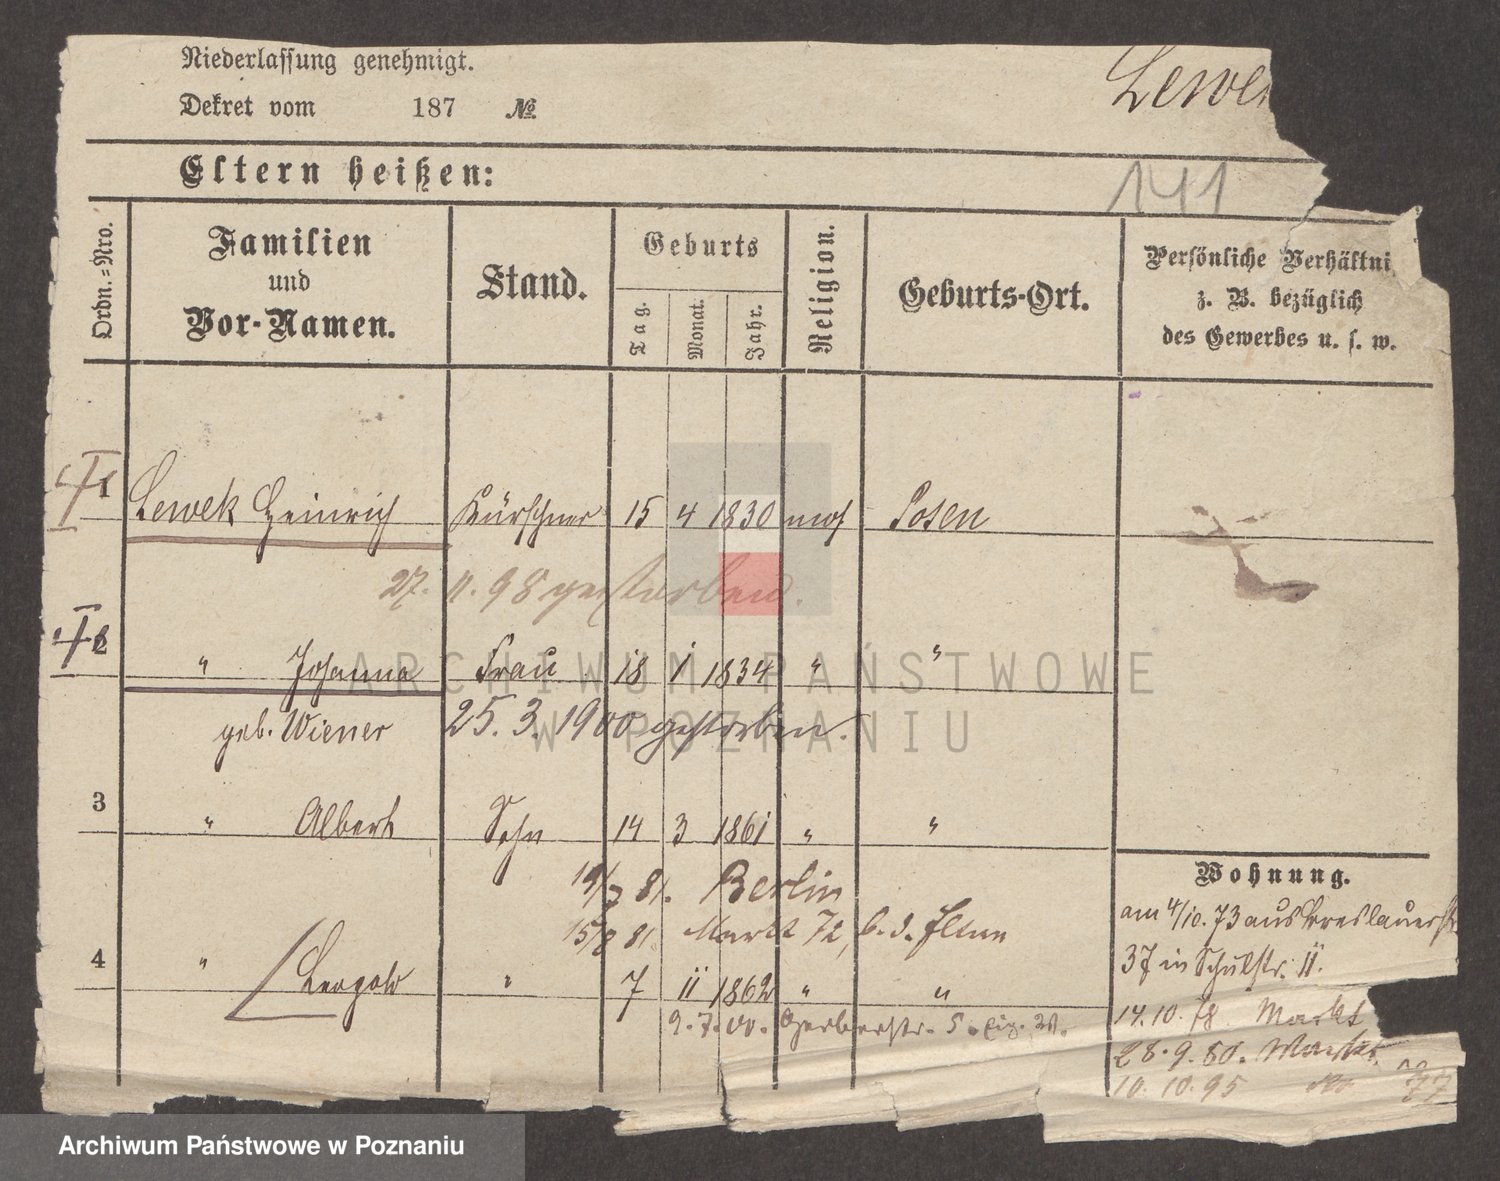 Niederlassung genehmigt.
Lewe
Dekret vom 187 №
Eltern heißen:
141
Ordn.-Nro.
Familien
und
Vor-Namen.
Stand.
Geburts
Tag.
Monat.
Jahr.
Religion.
Geburts-Ort.
Persönliche Verhältni
z. B. bezüglich
des Gewerbes u. s. w.
1 Lewek Heinrich Kürschner 15 4 1830 mos Posen
27. 11. 98 gestorben.
2 " Johanna Frau 18 1 1834 " "
geb. Wiener 25. 3. 1900 gestorben.
3 " Albert Sohn 14 3 1861 " "
19/7 81. Berlin
15/8 81. Markt 72, b. d. Eltern
4 " Leopold " 7 11 1862 " "
9. 7. 00. Gerberstr. 5.
Wohnung.
am 4/10. 73 aus Breslauerstr
37 in Schulstr. 11.
14. 10. 78 Markt
28. 9. 80. Markt
10. 10. 95 77
ARCHIWUM PAŃSTWOWE
W POZNANIU
Archiwum Państwowe w Poznaniu